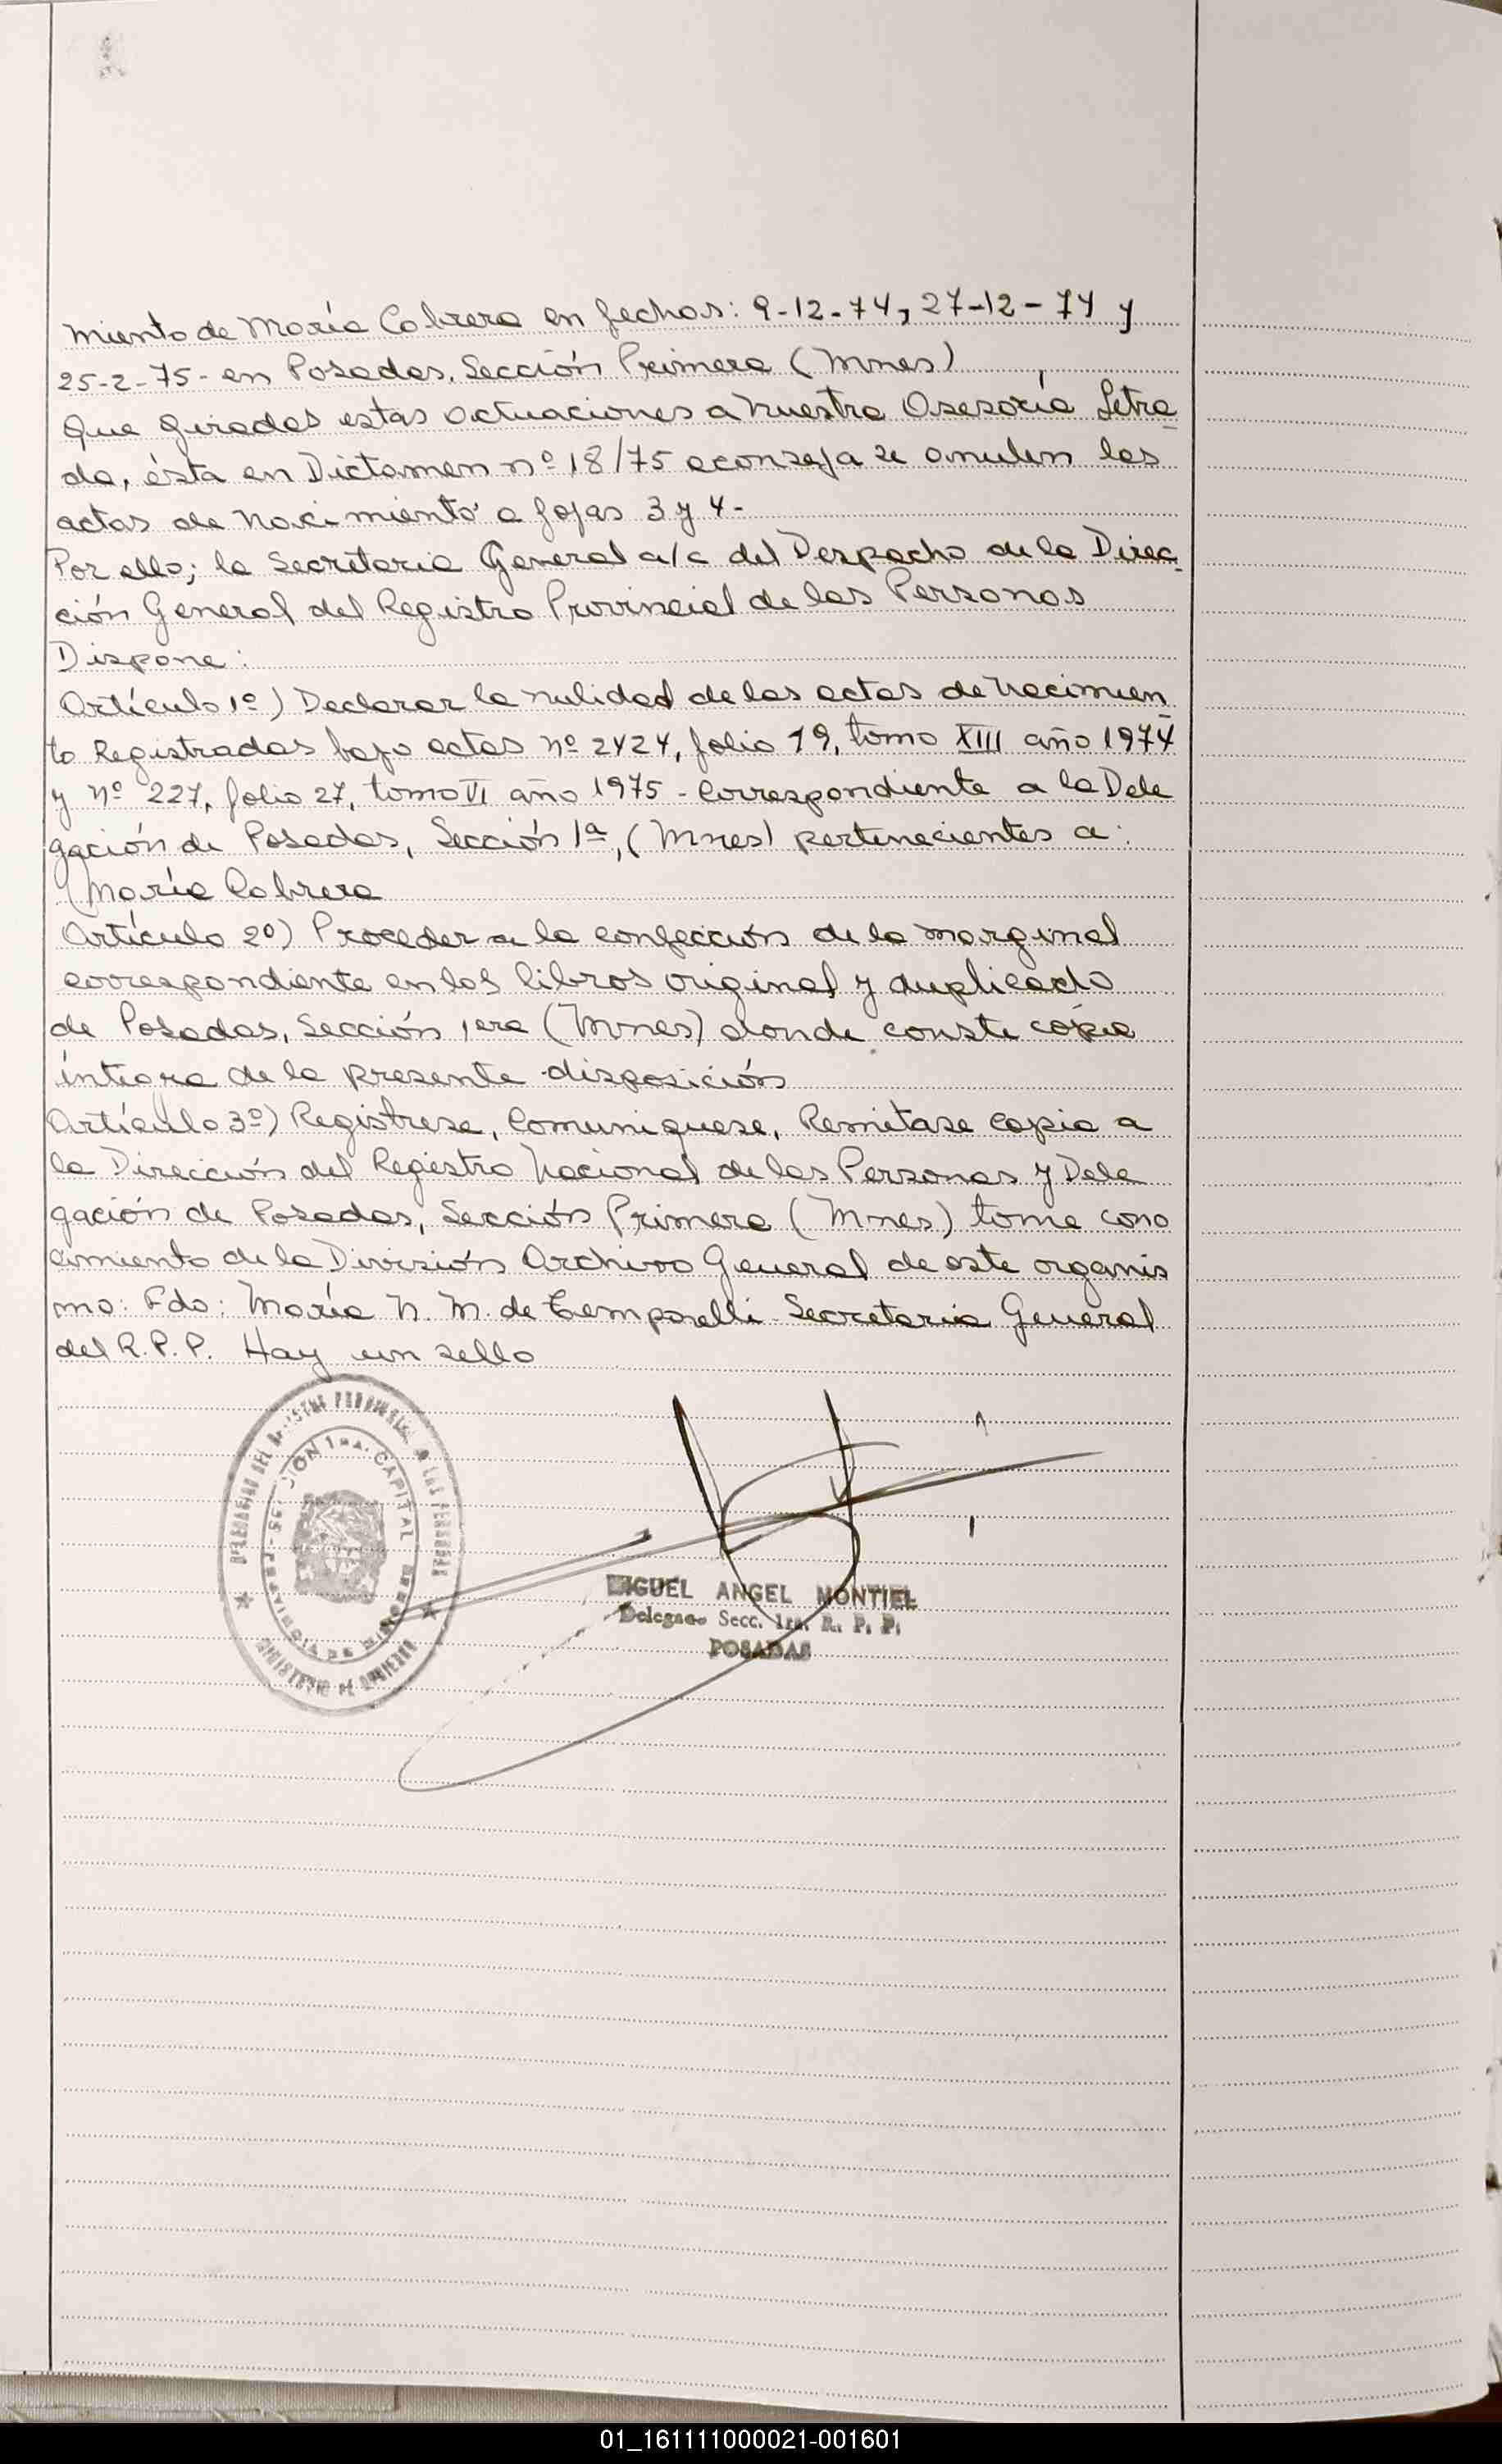 miento de María Cabrera en fechas: 9-12-74, 27-12-74 y
25-2-75- en Posadas, Sección Primera (Mnes)
Que giradas estas actuaciones a nuestra Asesoría Letra
da, ésta en Dictamen nº 18/75 aconseja se anulen las
actas de nacimiento a fojas 3 y 4-
Por ello; la Secretaria General a/c del Despacho de la Direc
ción General del Registro Provincial de las Personas
Dispone:
Artículo 1º) Declarar la nulidad de las actas de nacimien
to Registradas bajo actas nº 2424, folio 19, tomo XIII año 1974
y nº 227, folio 27, tomo VI año 1975 - Correspondiente a la Dele
gación de Posadas, Sección 1ª, (Mnes) pertenecientes a:
María Cabrera
Artículo 2º) Proceder a la confección de la marginal
correspondiente en los libros original y duplicado
de Posadas, Sección 1era (Mnes) donde conste copia
íntegra de la presente disposición
Artículo 3º) Regístrese, Comuníquese, Remítase copia a
la Dirección del Registro Nacional de las Personas y Dele
gación de Posadas, Sección Primera (Mnes) tome cono
cimiento de la División Archivo General de este organis
mo: Fdo: María N. M. de Temporelli - Secretaria General
del R.P.P. Hay un sello
1ra. CAPITAL
MIGUEL ANGEL MONTIEL
Delegado Secc. 1ra. R. P. P.
POSADAS
01_161111000021-001601